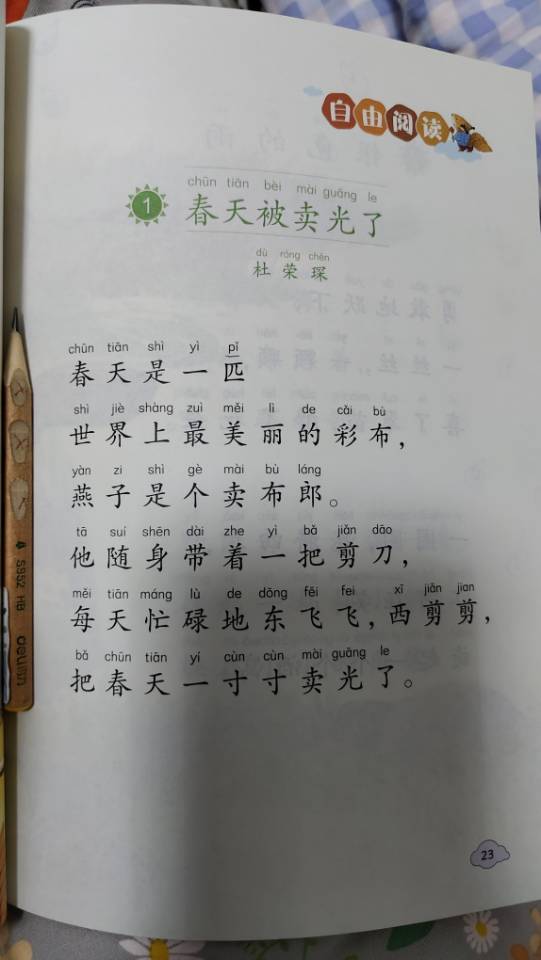 自由阅读
chūn tiān bèi mài guāng le
1 春天被卖光了
dù róng chēn
杜荣琛
chūn tiān shì yì pǐ
春天是一匹
shì jiè shàng zuì měi lì de cǎi bù
世界上最美丽的彩布，
yàn zi shì gè mài bù láng
燕子是个卖布郎。
tā suí shēn dài zhe yì bǎ jiǎn dāo
他随身带着一把剪刀，
měi tiān máng lù de dōng fēi fei xī jiǎn jian
每天忙碌地东飞飞，西剪剪，
bǎ chūn tiān yí cùn cùn mài guāng le
把春天一寸寸卖光了。
23
S952 HB deli